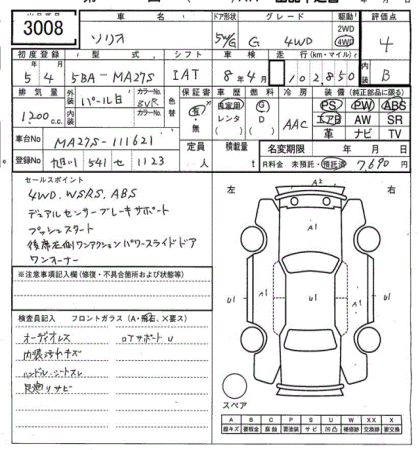 3008
車名 ドア形状 グレード 駆動 評価点
ソリオ 5W/G G 4WD 2WD 4WD 4
初度登録 型式 シフト 車検 走行(km・マイル) 内装
5年4月 5BA-MA27S IAT 8年4月 102,850 B
排気量 外装 カラーNo. 色替 保証書 車歴 燃料 冷房 装備(純正部品に限る)
1200c.c. パール白 ZVR 有・無 自家用 レンタ G D AAC PS PW ABS
内装 カラーNo. エアB AW SR
革 ナビ TV
車台No MA27S-111621 定員 人 積載量 t 名変期限 年 月 日
登録No 旭川 541 せ 1123 R料金 未預託・預託済 7,690 円
セールスポイント
4WD. WSRS. ABS
デュアルセンサーブレーキサポート
プッシュスタート
後席左側ワンアクションパワースライドドア
ワンオーナー
※注意事項記入欄(修復・不具合箇所および状態等)
検査員記入 フロントガラス(A・飛石、×要ス)
オーディオレス コアサポートU
内装汚れキズ
ハンドル・シートスレ
下廻りサビ
左 右
A2
A1
U1 A1 A1 U1
スペア
A B C P S U W X XX
線キズ 要板金 腐蝕 要塗装 サビ 凹凸 補修跡 交換跡 要交換